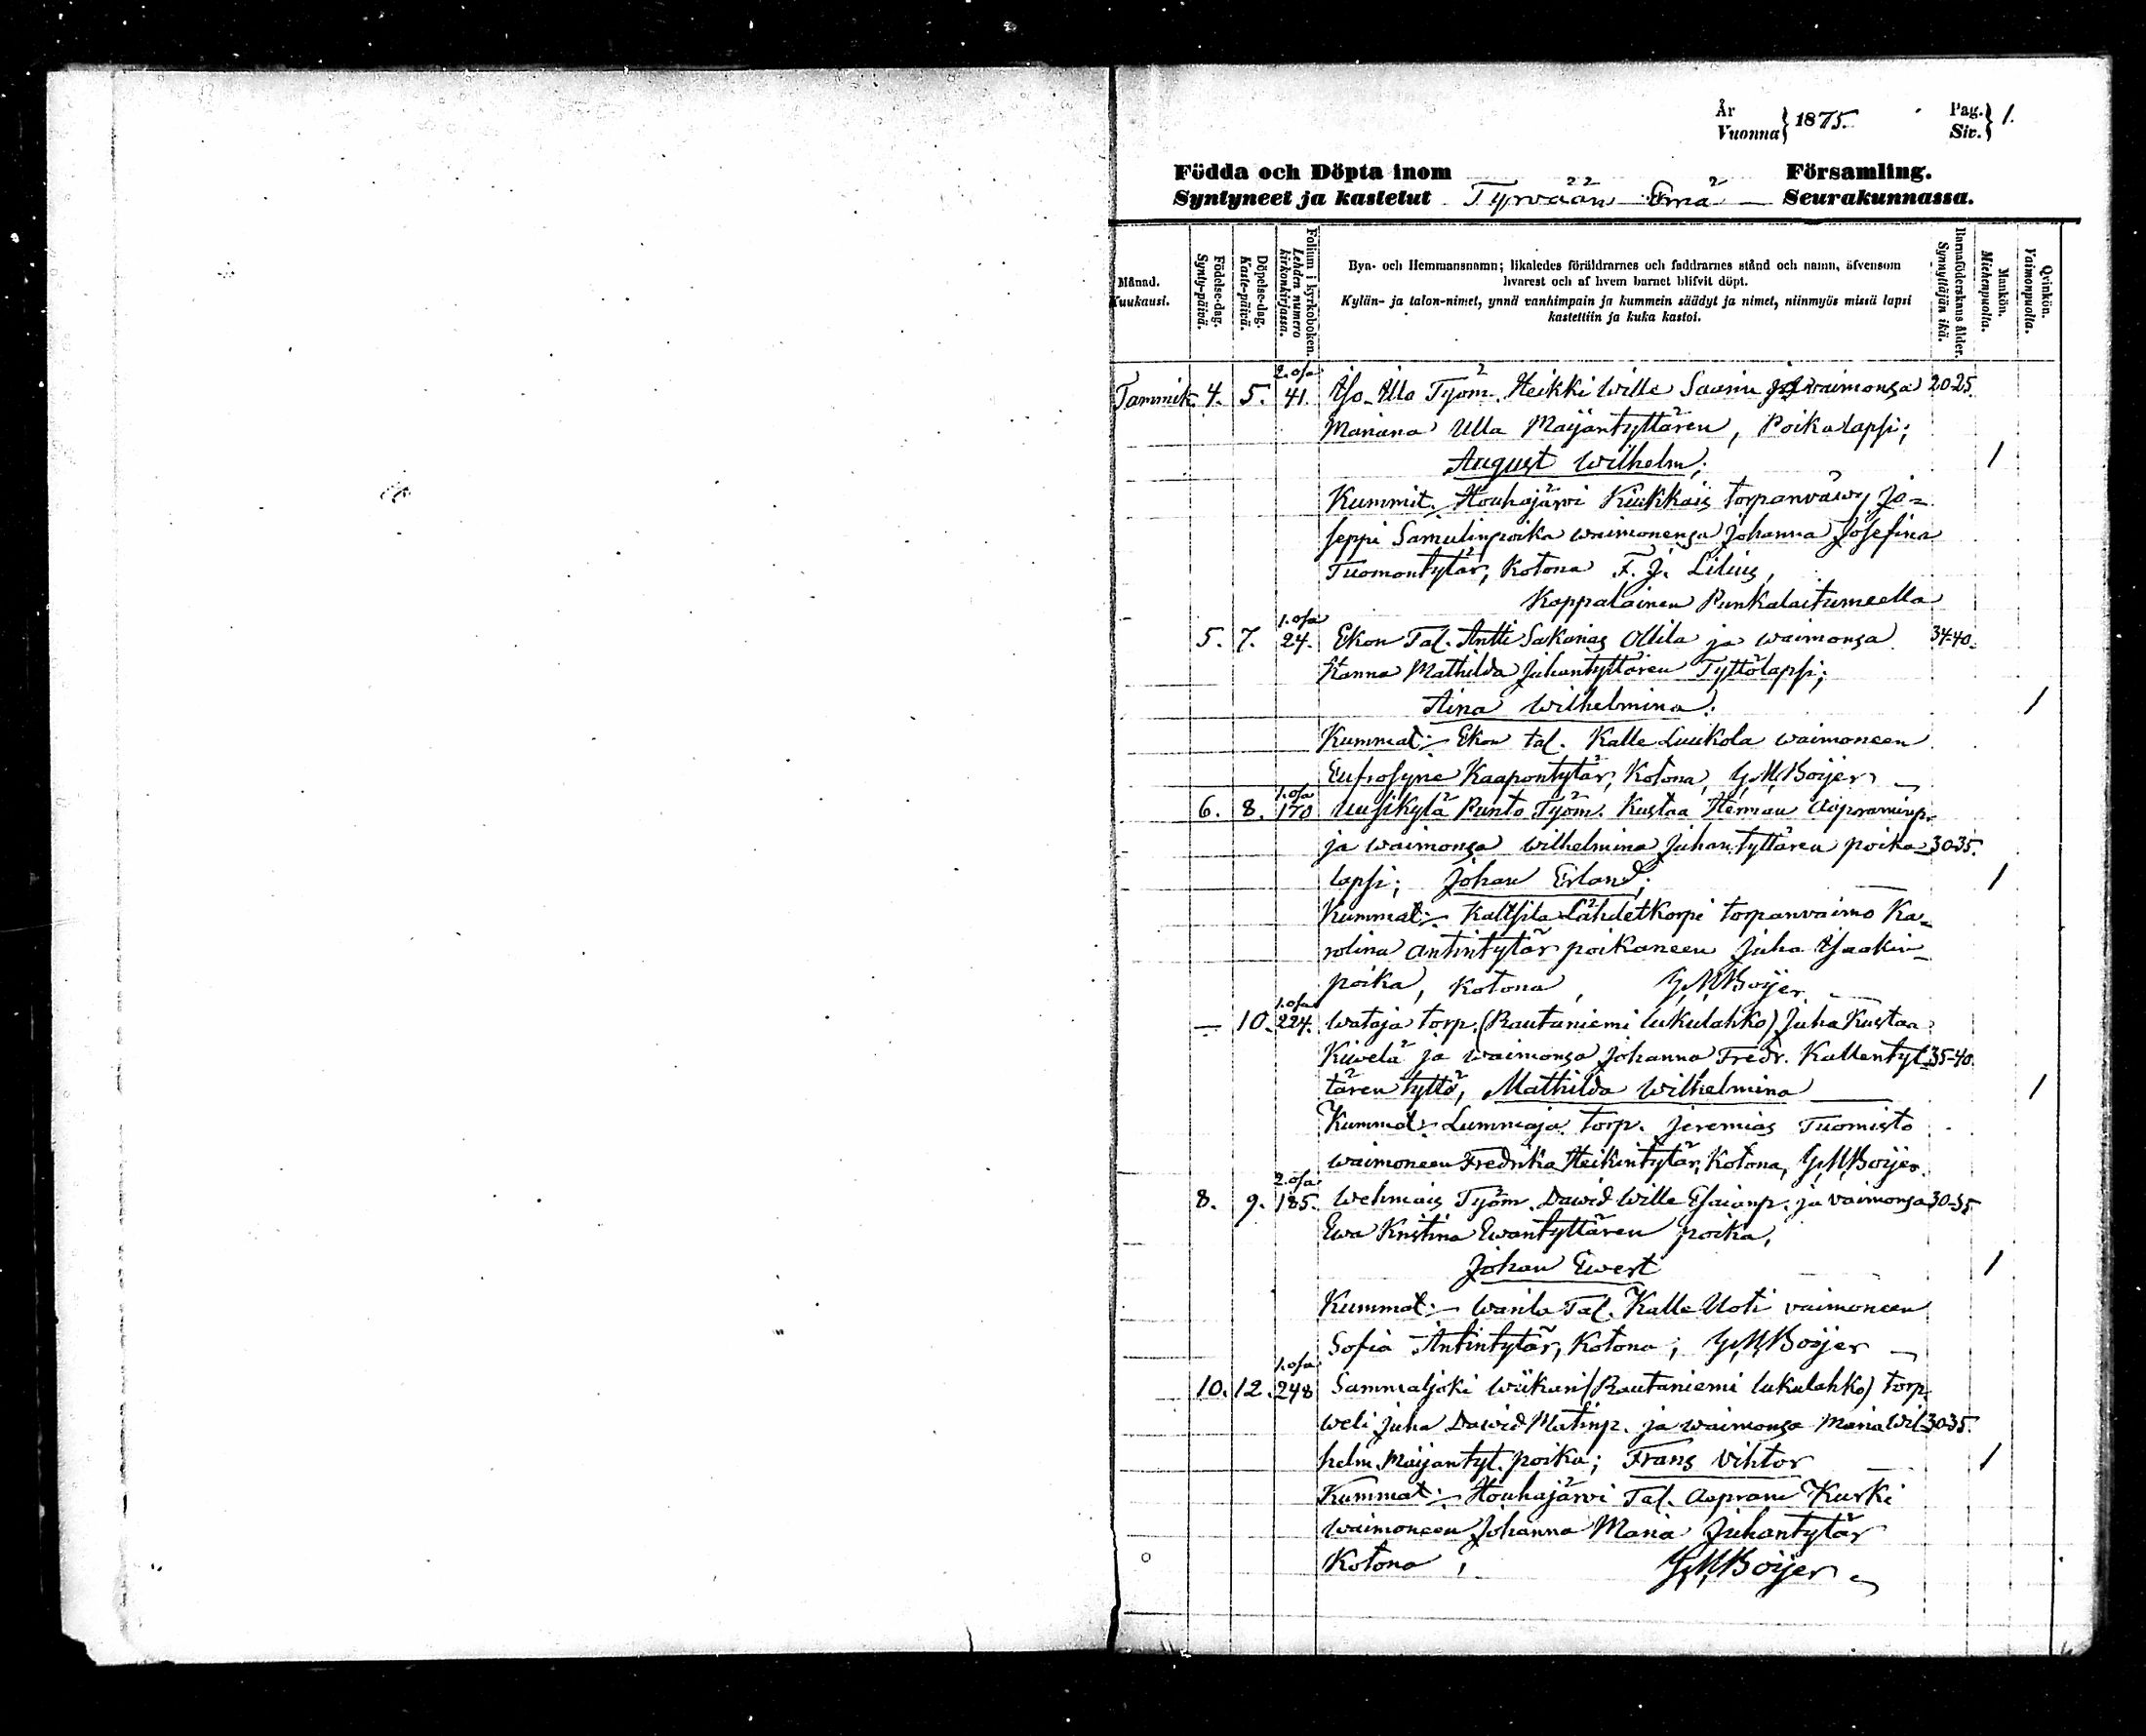 År
Vuonna } 1875. Pag. Siv. } 1.
Födda och Döpta inom Församling.
Syntyneet ja kastetut Tyrvään Emä Seurakunnassa.
Månad. Kuukausi.
Födelse-dag. Synty-päivä.
Döpelse-dag. Kaste-päivä.
Folium i kyrkoboken. Lehden numero kirkonkirjassa.
Bya- och Hemmansnamn; likaledes föräldrarnes och faddrarnes stånd och namn, äfvensom
hvarest och af hvem barnet blifvit döpt.
Kylän- ja talon-nimet, ynnä vanhimpain ja kummein säädyt ja nimet, niinmyös missä lapsi
kastettiin ja kuka kastoi.
Barnaföderskans ålder. Synnyttäjän ikä.
Mankön. Miehenpuolia.
Qvinkön. Vaimonpuolia.
2. osa
Tammik. 4. 5. 41. Iso-Ulla Työm. Heikki Wille ja waimonsa 20-25.
Mariana Ulla Maijantyttären, Poikalapsi;
August Wilhelm; 1
Kummit. Houhajärvi Kiukkais torpanvävy Jo-
seppi Samulinpoika waimonensa Johanna Josefina
Tuomontytär, Kotona F. J. Lilius,
Kappalainen Punkalaitumeella
1. osa
5. 7. 24. Ekon Tal. Antti Sakarias Ollila ja waimonsa 34-40.
Hanna Mathilda Juhantyttären Tyttölapsi;
Aina Wilhelmina: 1
Kummat: Ekon tal. Kalle Luukola waimoneen
Eufrosyne Kaapontytär, Kotona, G. M. Boijer
1. osa
6. 8. 170 Uusikylä Punto Työm. Kustaa Herman Aapraminp.
ja waimonsa Wilhelmina Juhantyttären poika- 30-35.
lapsi; Johan Erland; 1
Kummat: Kaltsila Lähdetkorpi torpanvaimo Ka-
rolina Antintytär poikaneen Juha Isaakin-
poika, Kotona, G. M. Boijer
1. osa
— 10. 224. Wataja torp. (Rautaniemi lukulahko) Juha Kustaa
Kiwelä ja waimonsa Johanna Fredr. Kallentyt- 35-40.
tären tyttö, Mathilda Wilhelmina 1
Kummat: Lummaja torp. Jeremias Tuomisto
waimoneen Fredrika Heikintytär, Kotona, G. M. Boijer.
2. osa
8. 9. 185. Wehmais Työm. Dawid Wille Esaianp. ja vaimonsa 30-35
Ewa Kristina Ewantyttären poika,
Johan Ewert 1
Kummat: Warila Tal. Kalle Uoti vaimoneen
Sofia Antintytär, Kotona; G. M. Boijer
1. osa
10. 12. 248 Sammaljoki Wükari (Rautaniemi lukulahko) torp.
weli Juha Dawid Matinp. ja waimonsa Maria Wil- 30-35.
helm. Maijantyt. poika; Frans Vihtor 1
Kummat: Houhajärvi Tal. Aapram Kurki
waimoneen Johanna Maria Juhantytär
Kotona, G. M. Boijer